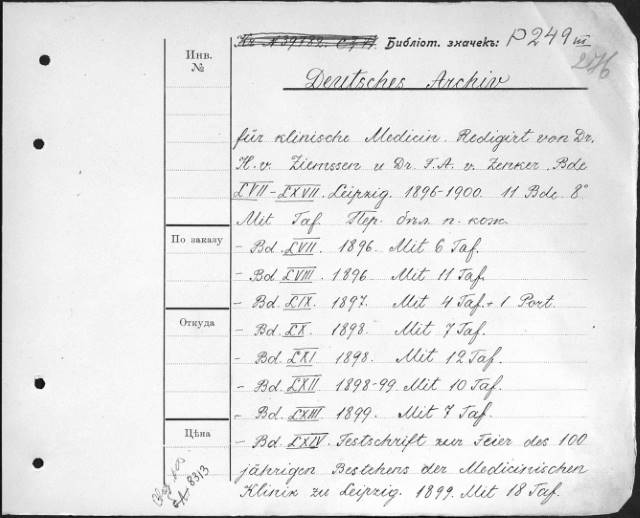 Библіот. значекъ: P249 III
276
Инв.
№
Deutsches Archiv
für klinische Medicin. Redigirt von Dr.
H. v. Ziemssen u Dr. F. A. v. Zenker. Bde
LVII-LXVII. Leipzig. 1896-1900. 11 Bde. 8°
Mit Taf. Пер. бѣл. п. кож.
По заказу
- Bd. LVII. 1896. Mit 6 Taf.
- Bd. LVIII. 1896 Mit 11 Taf.
- Bd. LIX. 1897. Mit 4 Taf. + 1 Port.
Откуда
- Bd. LX. 1898. Mit 7 Taf.
- Bd. LXI 1898. Mit 12 Taf.
- Bd. LXII 1898-99. Mit 10 Taf.
- Bd. LXIII. 1899. Mit 7 Taf.
Цѣна
- Bd. LXIV. Festschrift zur Feier des 100
jährigen Bestehens der Medicinischen
Klinik zu Leipzig. 1899. Mit 18 Taf.
8313